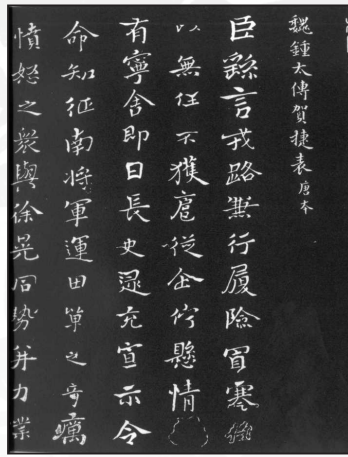 魏鍾太傅賀捷表唐本
臣繇言戎路兼行履險冒寒
以無任不獲扈從企佇懸情
有寧舍即日長史逯充宣示令
命知征南將軍運田單之奇厲
憤怒之眾與徐晃同勢并力